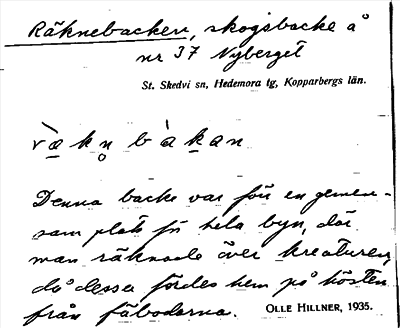 Räknebacken, skogsbacke å
nr 37 Nyberget
St. Skedvi sn, Hedemora tg, Kopparbergs län.
Denna backe var förr en gemen-
sam plats för hela byn, där
man räknade över kreaturen,
då dessa fördes hem på hösten
från fäbodarna.
OLLE HILLNER, 1935.